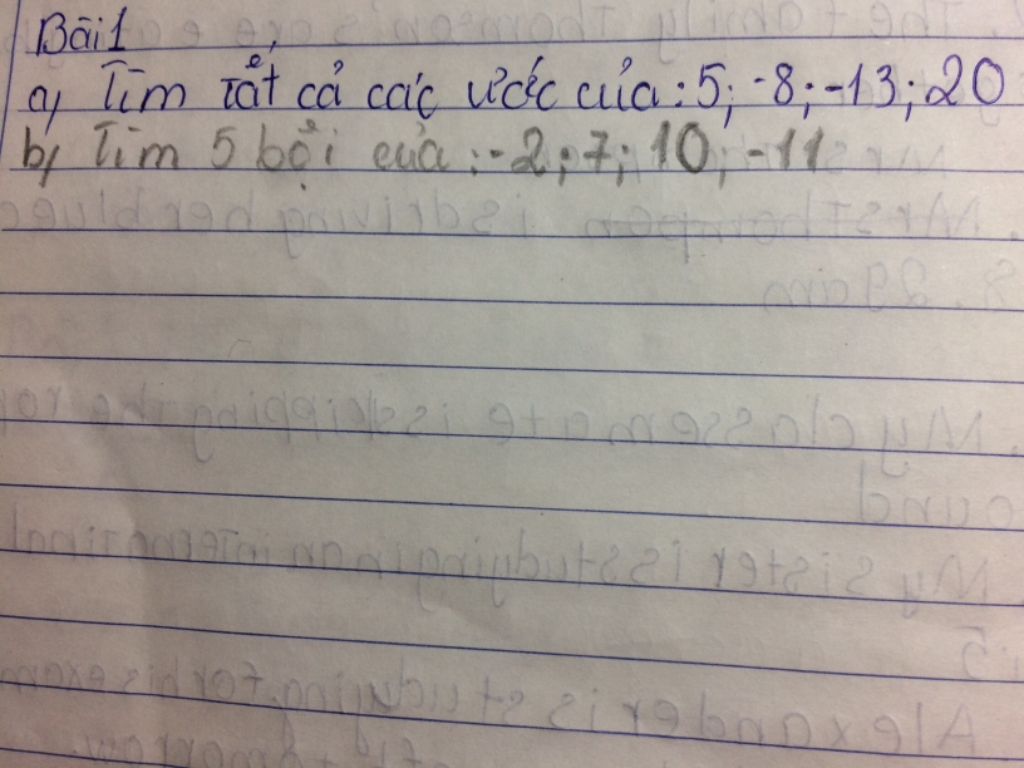 Bài 1
a) Tìm tất cả các ước của: 5; -8; -13; 20
b) Tìm 5 bội của: -2; 7; 10; -11